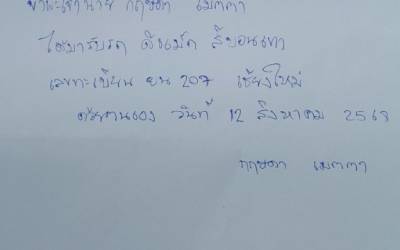 ข้าพเจ้านาย กฤษดา เมตตา
ได้มารับรถ ดีแม็ค สีบอนเทา
เลขทะเบียน ยน 207 เชียงใหม่
ด้วยตนเอง วันที่ 12 สิงหาคม 256
กฤษดา เมตตา